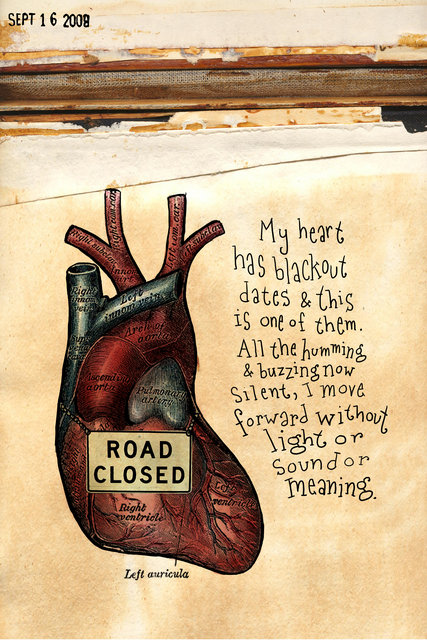 SEPT 16 2009
My heart
has blackout
dates & this
is one of them.
All the humming
& buzzing now
silent, I move
forward without
light or
sound or
meaning.
Left
innom. vein
Right
innom.
vein
Arch of
aorta
Ascend.
aorta
Pulmonary
artery
ROAD
CLOSED
Right
ventricle
Left
ventricle
Left auricula